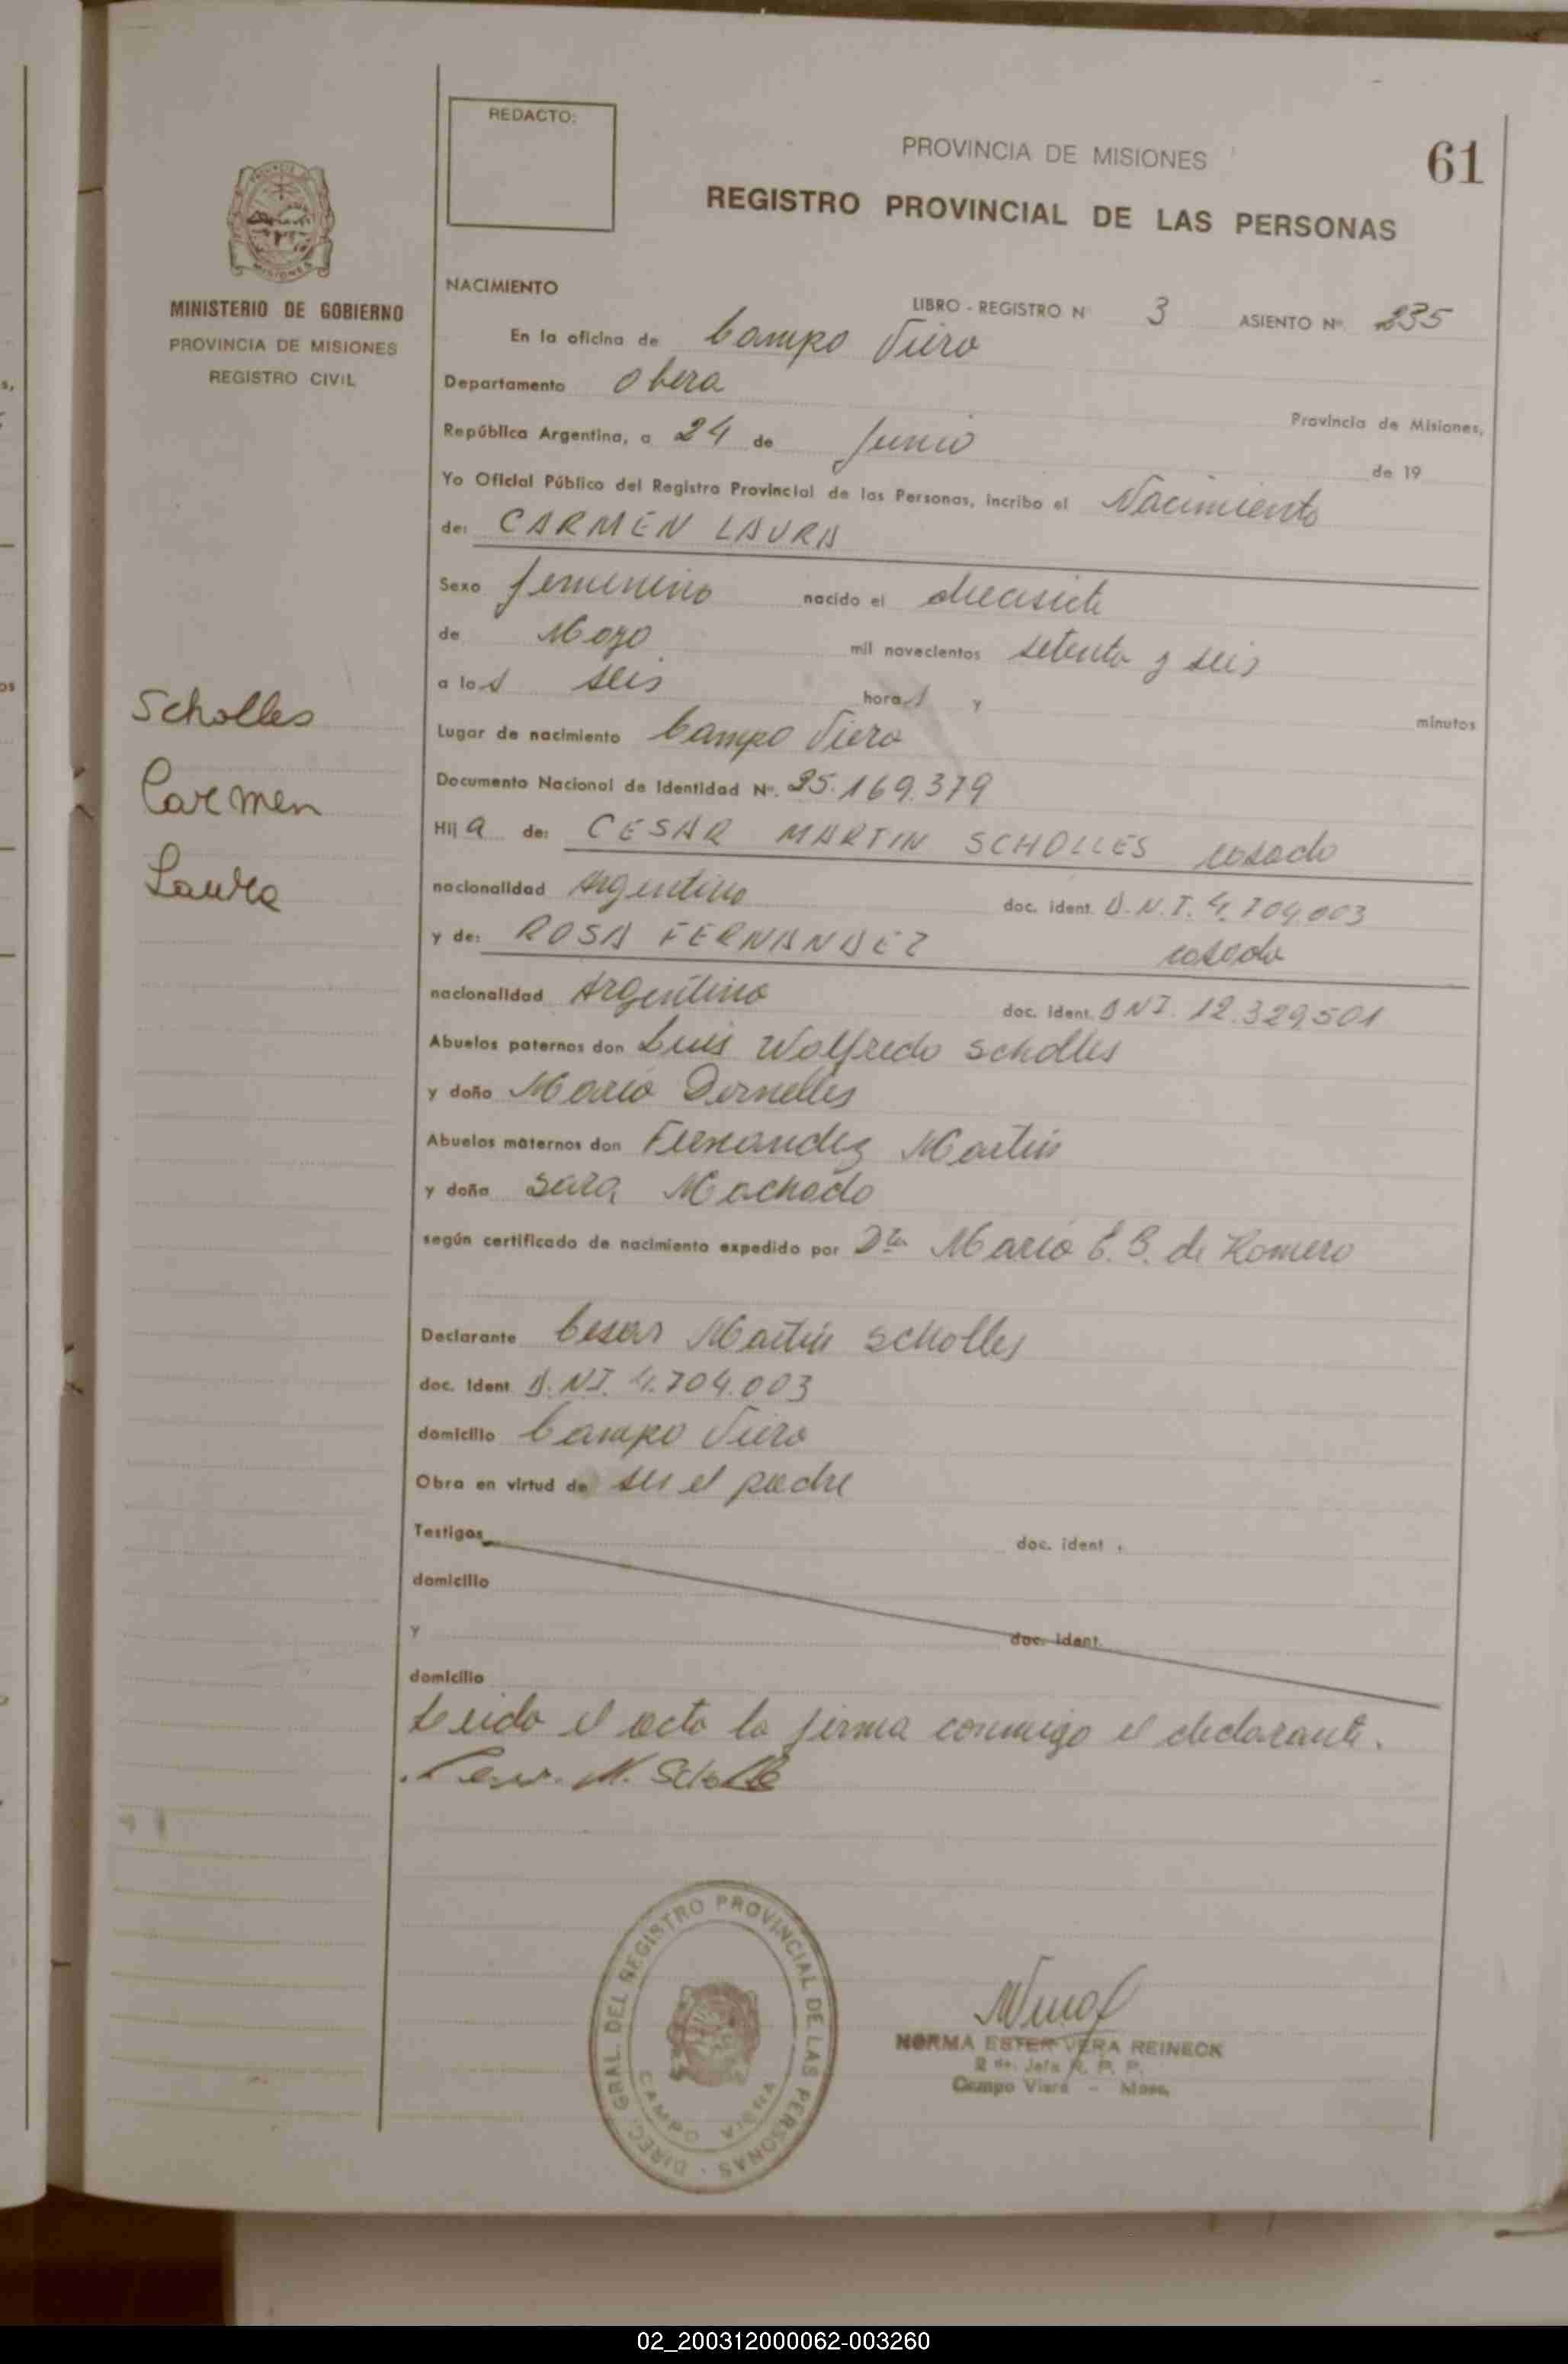 REDACTO:
PROVINCIA DE MISIONES
61
REGISTRO PROVINCIAL DE LAS PERSONAS
MINISTERIO DE GOBIERNO
PROVINCIA DE MISIONES
REGISTRO CIVIL
NACIMIENTO
LIBRO - REGISTRO N 3 ASIENTO Nº. 235
En la oficina de Campo Viera
Departamento Obera
Provincia de Misiones,
República Argentina, a 24 de Junio
de 19
Yo Oficial Público del Registro Provincial de las Personas, incribo el Nacimiento
de: CARMEN LAURA
Sexo femenino nacido el diecisiete
de Mayo mil novecientos setenta y seis
a las seis horas y minutos
Scholles
Carmen
Laura
Lugar de nacimiento Campo Viera
Documento Nacional de Identidad Nº. 25.169.379
Hija de: CESAR MARTIN SCHOLLES casado
nacionalidad Argentino doc. ident. D.N.I. 4.704.003
y de: ROSA FERNANDEZ casada
nacionalidad Argentina doc. ident. DNI. 12.329501
Abuelos paternos don Luis Wolfredo Scholles
y doña Maria Dornelles
Abuelos maternos don Fernandez Martin
y doña Sara Machado
según certificado de nacimiento expedido por Dra Maria E. B. de Romero
Declarante Cesar Martin Scholles
doc. Ident D.NI. 4.704.003
domicilio Campo Viera
Obra en virtud de ser el padre
Testigos doc. ident.
domicilio
y doc. ident.
domicilio
Leida el acta la firma conmigo el declarante.
Cesar M. Scholles
DIREC. GRAL. DEL REGISTRO PROVINCIAL DE LAS PERSONAS -
CAMPO VIERA
NORMA ESTER VERA REINECK
2 da. Jefa R. P. P.
Campo Viera - Mnes.
02_200312000062-003260